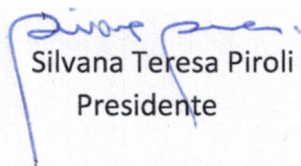 Silvana Teresa Piroli
Presidente